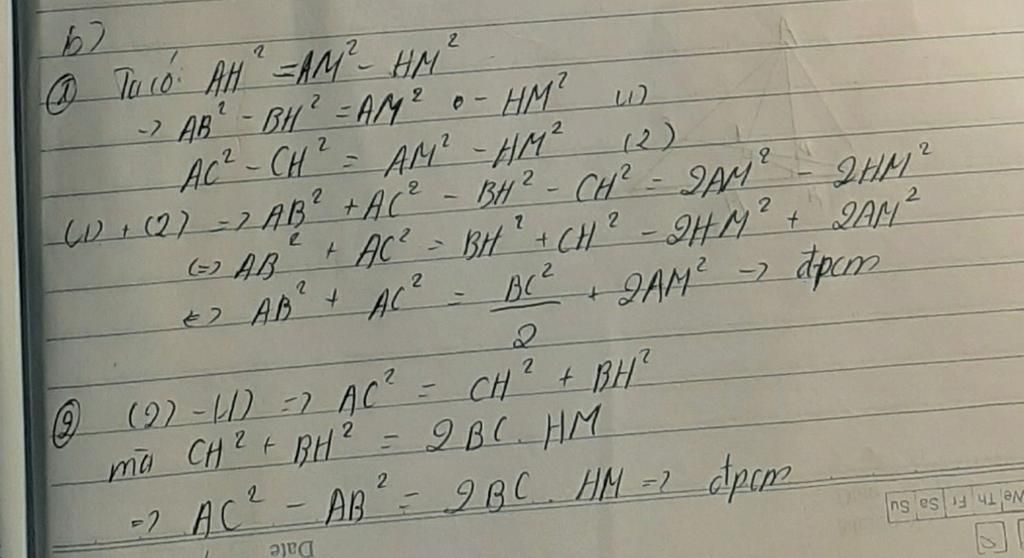 b)
① Ta có: AH² = AM² - HM²
-> AB² - BH² = AM² - HM² (1)
AC² - CH² = AM² - HM² (2)
(1) + (2) => AB² + AC² - BH² - CH² = 2AM² - 2HM²
<=> AB² + AC² = BH² + CH² - 2HM² + 2AM²
<=> AB² + AC² = BC²/2 + 2AM² -> đpcm
② (2) - (1) => AC² = CH² + BH²
mà CH² + BH² = 2BC . HM
=> AC² - AB² = 2BC . HM => đpcm
We Th Fr Sa Su
Date